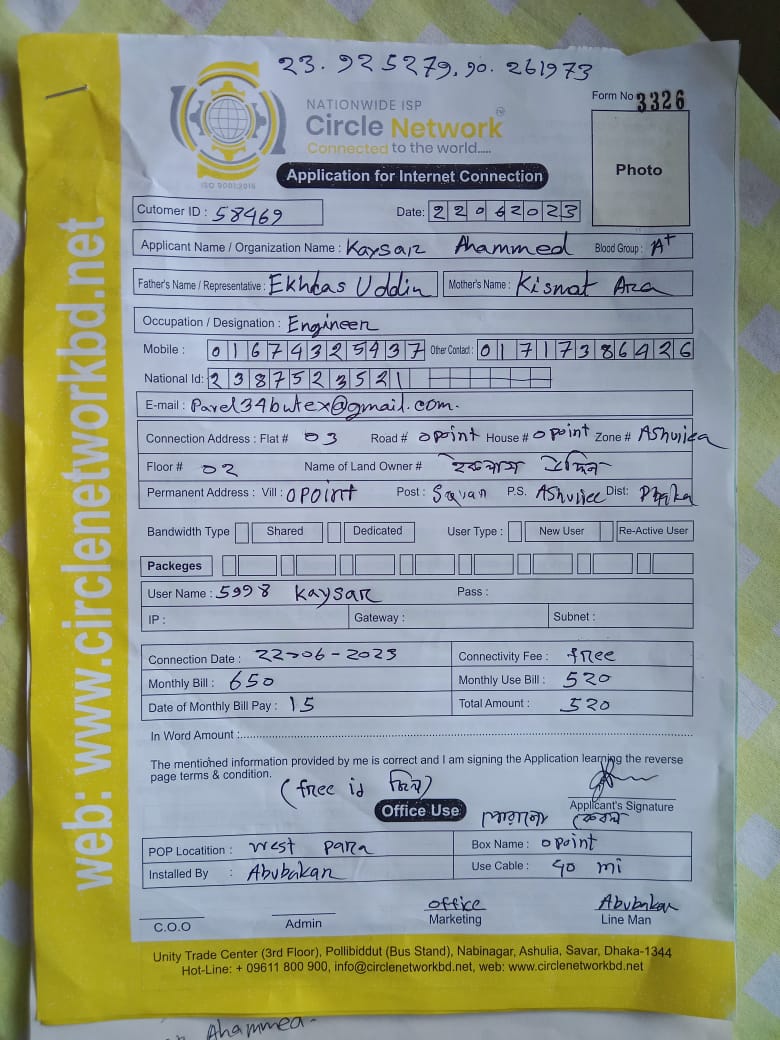 23.925279, 90.261973
NATIONWIDE ISP
Circle Network
Connected to the world.....
ISO 9001:2015
Form No 3326
Photo
Application for Internet Connection
Cutomer ID : 58469 Date: 22062023
Applicant Name / Organization Name : Kaysar Ahammed Blood Group : A+
Father's Name / Representative : Ekhlas Uddin Mother's Name : Kismat Ara
Occupation / Designation : Engineer
Mobile : 01674325437 Other Contact : 01717386426
National Id: 2387523521
E-mail : Parel34butex@gmail.com.
Connection Address : Flat # 03 Road # opoint House # opoint Zone # Ashuliea
Floor # 02 Name of Land Owner # উদ্দিন
Permanent Address : Vill : opoint Post : Savan P.S. Ashuliee Dist: Dhaka
Bandwidth Type Shared Dedicated User Type : New User Re-Active User
Packeges
User Name : 5998 Kaysar Pass :
IP : Gateway : Subnet :
Connection Date : 22-06-2023 Connectivity Fee : free
Monthly Bill : 650 Monthly Use Bill : 520
Date of Monthly Bill Pay : 15 Total Amount : 520
In Word Amount :
The mentioned information provided by me is correct and I am signing the Application learning the reverse
page terms & condition.
(free id
Applicant's Signature
Office Use
POP Locatition : west para Box Name : opoint
Installed By : Abubakan Use Cable : 40 mi
C.O.O Admin office Marketing Abubakan Line Man
Unity Trade Center (3rd Floor), Pollibiddut (Bus Stand), Nabinagar, Ashulia, Savar, Dhaka-1344
Hot-Line: + 09611 800 900, info@circlenetworkbd.net, web: www.circlenetworkbd.net
web: www.circlenetworkbd.net
Ahammed